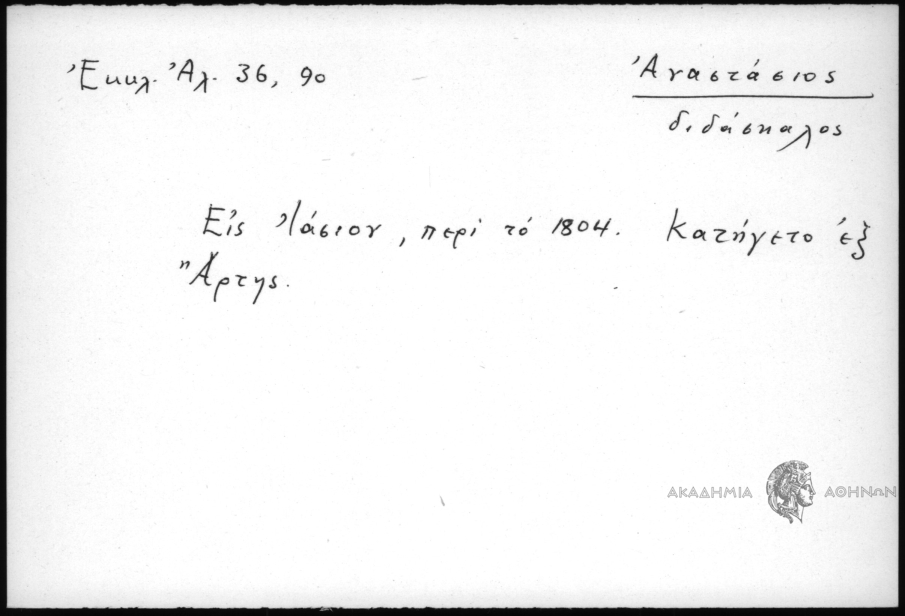 Ἐκκλ. Ἀλ. 36, 90
Ἀναστάσιος
διδάσκαλος
Εἰς Ἰάσιον, περί τό 1804. Κατήγετο ἐξ
Ἄρτης.
ΑΚΑΔΗΜΙΑ ΑΘΗΝΩΝ